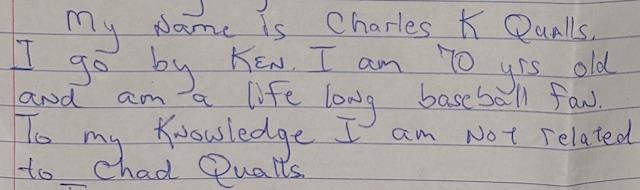 My Name is Charles K Qualls.
I go by KEN. I am 70 yrs old
and am a life long baseball fan.
To my Knowledge I am Not related
to Chad Qualls.